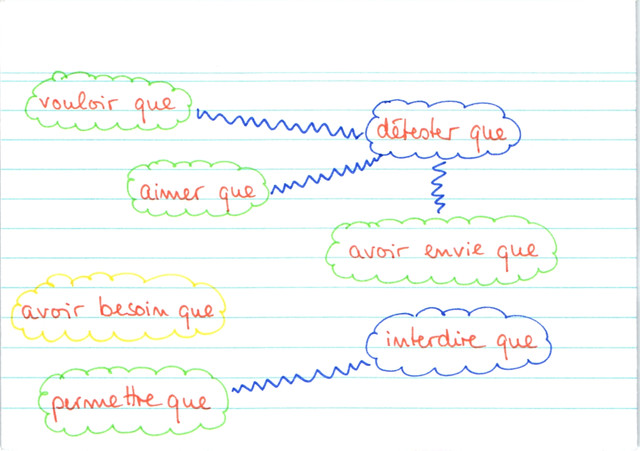 vouloir que
détester que
aimer que
avoir envie que
avoir besoin que
interdire que
permettre que